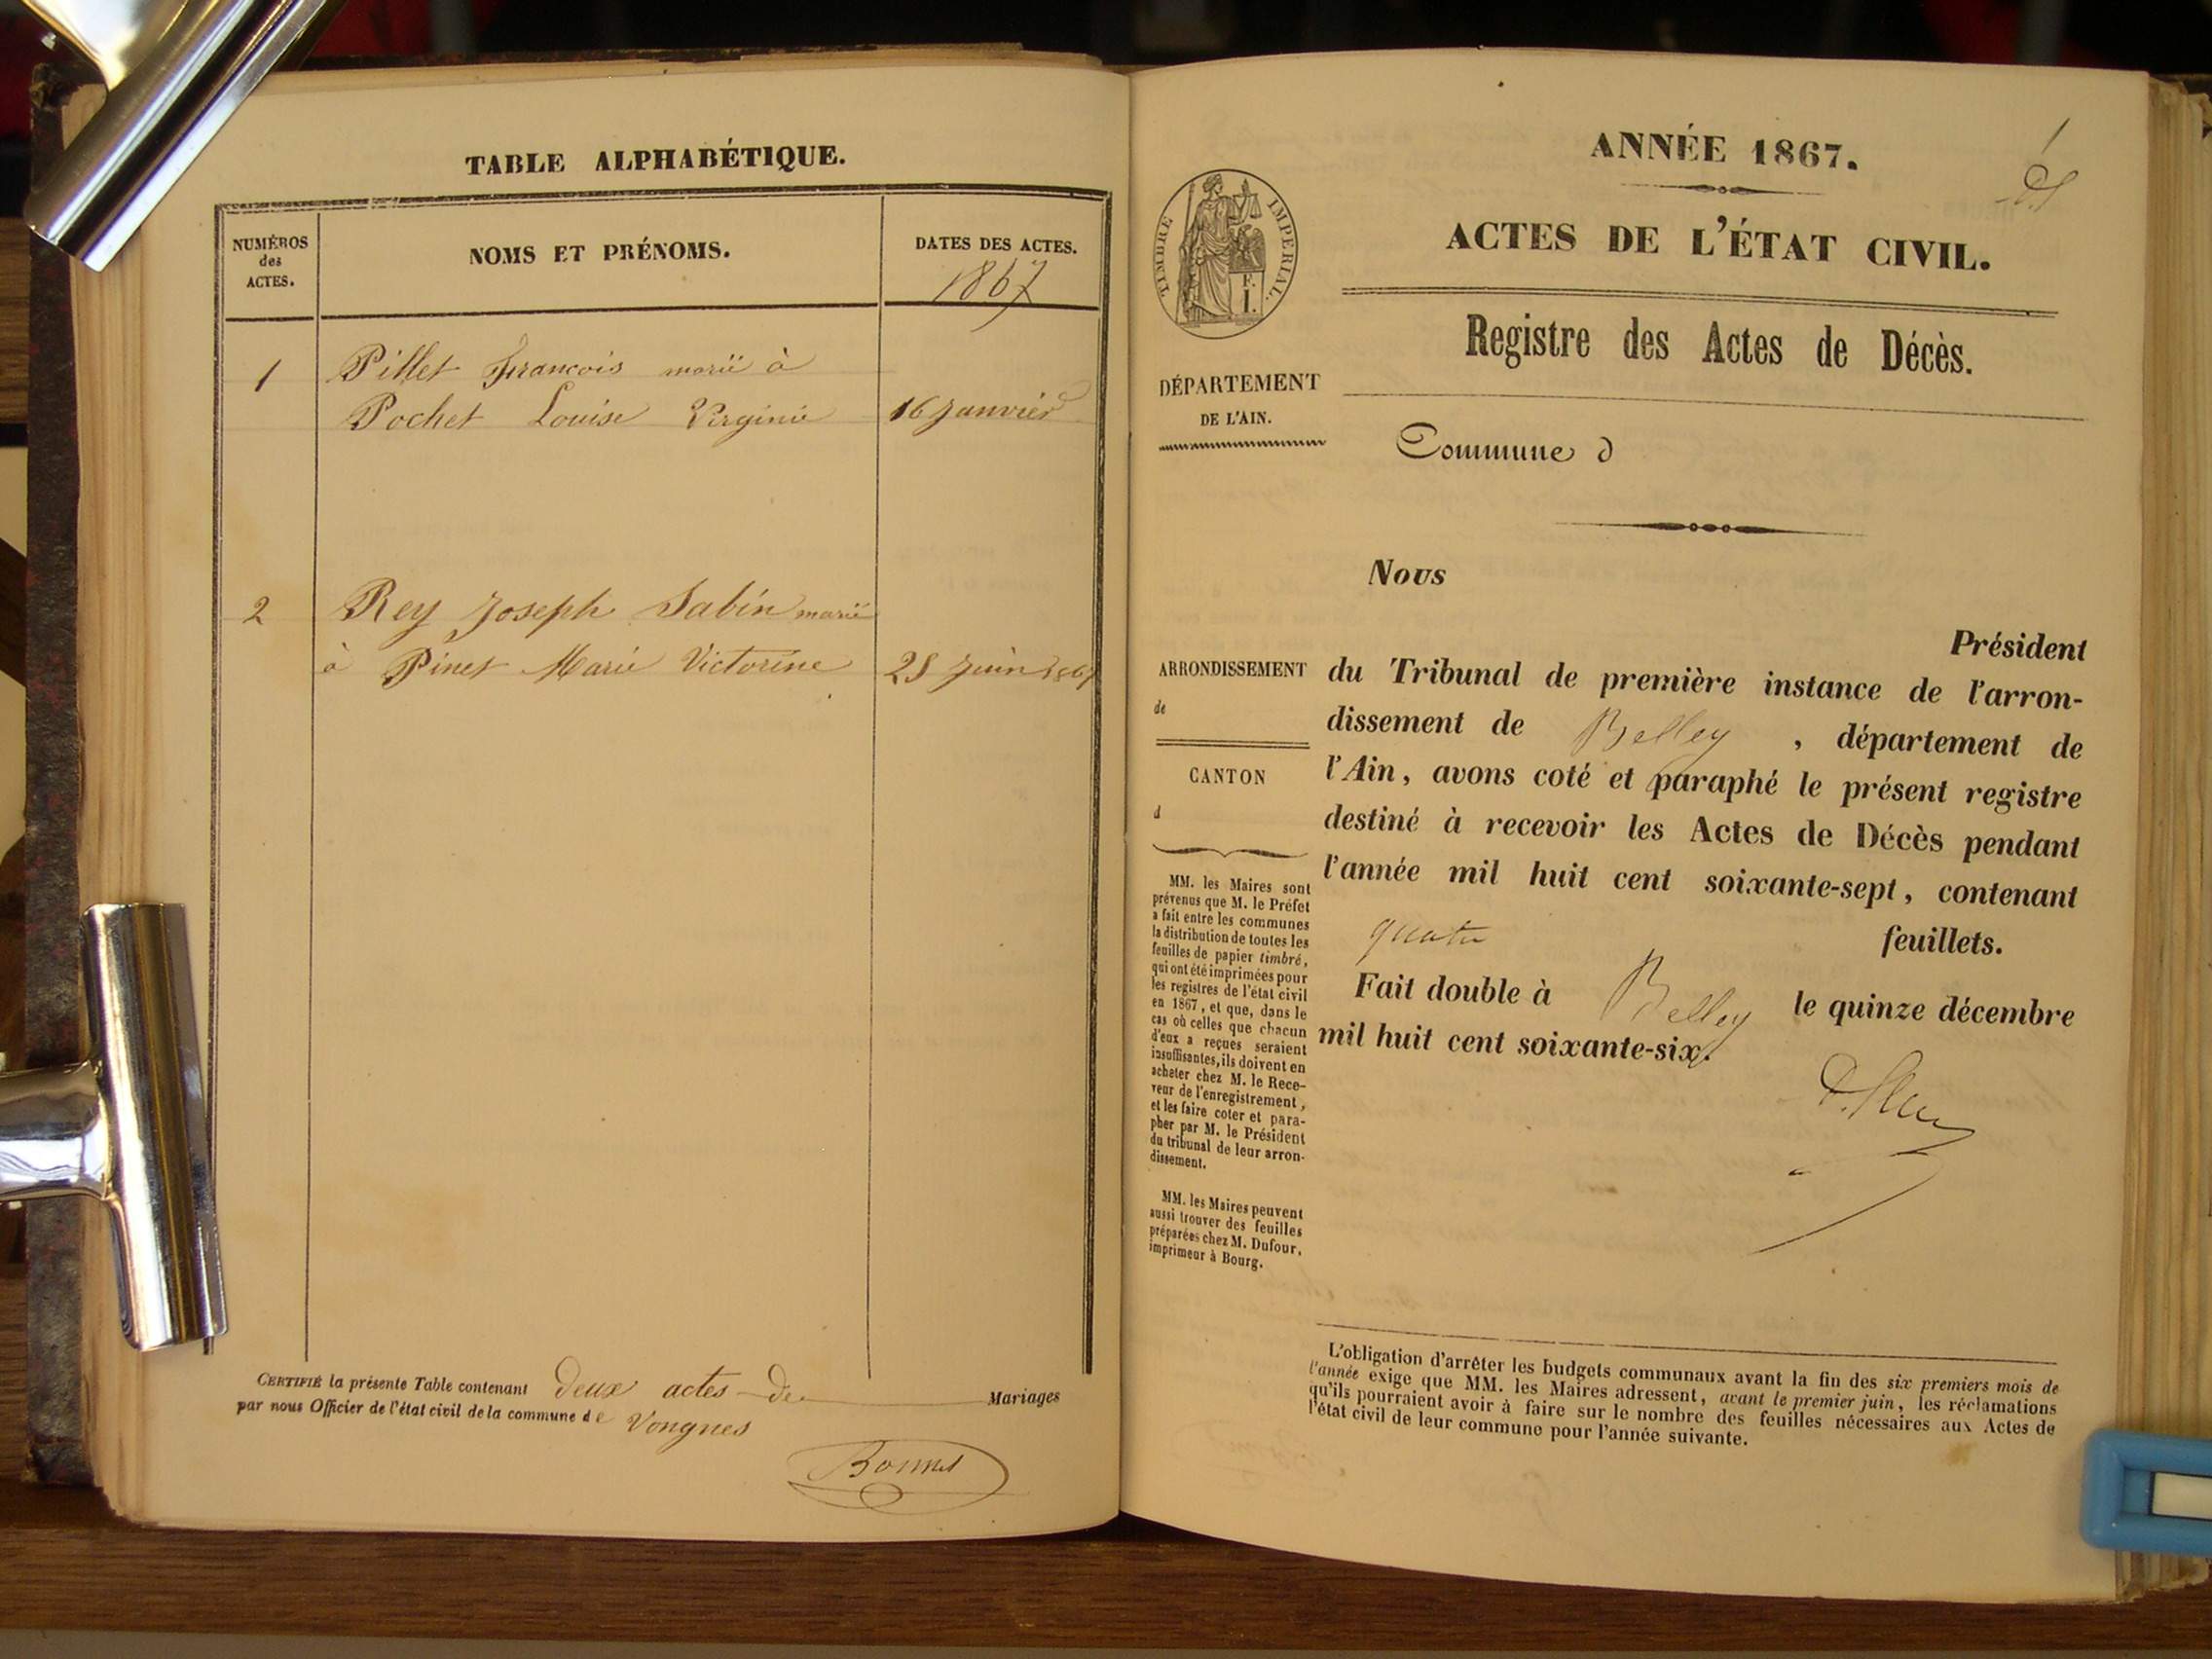 TABLE ALPHABÉTIQUE.
NUMÉROS
des
ACTES.
NOMS ET PRÉNOMS.
DATES DES ACTES.
1867
1 Pillet François marié à
Pochet Louise Virginie 16 Janvier
2 Rey Joseph Sabin marié
à Pinet Marie Victorine 25 Juin 1867
CERTIFIÉ la présente Table contenant deux actes de Mariages
par nous Officier de l'état civil de la commune de Vongnes
Bonnet
ANNÉE 1867.
ACTES DE L'ÉTAT CIVIL.
TIMBRE IMPERIAL.
Registre des Actes de Décès.
DÉPARTEMENT
DE L'AIN.
Commune d
Nous
Président
ARRONDISSEMENT
de
CANTON
d
du Tribunal de première instance de l'arron-
dissement de Belley , département de
l'Ain, avons coté et paraphé le présent registre
destiné à recevoir les Actes de Décès pendant
l'année mil huit cent soixante-sept, contenant
quatre feuillets.
Fait double à Belley le quinze décembre
mil huit cent soixante-six.
MM. les Maires sont
prévenus que M. le Préfet
a fait entre les communes
la distribution de toutes les
feuilles de papier timbré,
qui ont été imprimées pour
les registres de l'état civil
en 1867, et que, dans le
cas où celles que chacun
d'eux a reçues seraient
insuffisantes, ils doivent en
acheter chez M. le Rece-
veur de l'enregistrement,
et les faire coter et para-
pher par M. le Président
du tribunal de leur arron-
dissement.
MM. les Maires peuvent
aussi trouver des feuilles
préparées chez M. Dufour,
imprimeur à Bourg.
L'obligation d'arrêter les budgets communaux avant la fin des six premiers mois de
l'année exige que MM. les Maires adressent, avant le premier juin, les réclamations
qu'ils pourraient avoir à faire sur le nombre des feuilles nécessaires aux Actes de
l'état civil de leur commune pour l'année suivante.